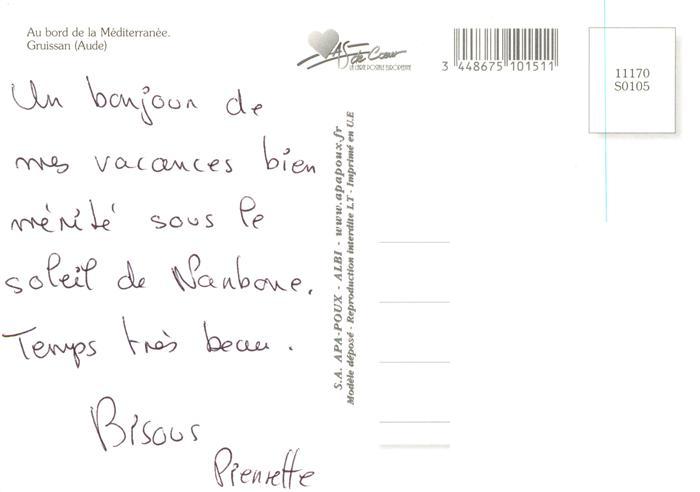 Au bord de la Méditerranée.
Gruissan (Aude)
Un bonjour de
mes vacances bien
mérité sous le
soleil de Narbone.
Temps très beau.
Bisous
Pierrette
AS de Cœur
LA CARTE POSTALE EUROPÉENNE
3 448675 101511
11170
S0105
S.A. APA-POUX - ALBI - www.apapoux.fr
Modèle déposé - Reproduction interdite LT - Imprimé en U.E